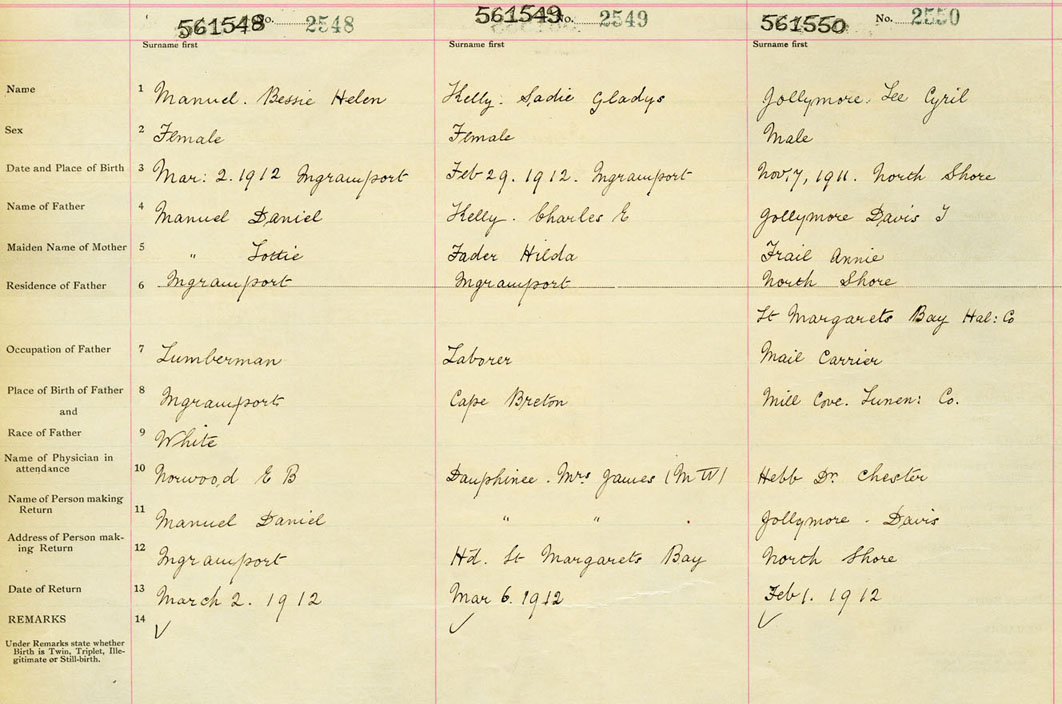 561548 No. 2548 561549 No. 2549 561550 No. 2550
Surname first Surname first Surname first
Name 1 Manuel. Bessie Helen Kelly. Sadie Gladys Jollymore. Lee Cyril
Sex 2 Female Female Male
Date and Place of Birth 3 Mar: 2. 1912 Ingramport Feb 29. 1912. Ingramport Nov. 7, 1911. North Shore
Name of Father 4 Manuel Daniel Kelly. Charles E Jollymore Davis I
Maiden Name of Mother 5 " Lottie Fader Hilda Frail Annie
Residence of Father 6 Ingramport Ingramport North Shore
St Margarets Bay Hal: Co
Occupation of Father 7 Lumberman Laborer Mail Carrier
Place of Birth of Father 8 Ingramport Cape Breton Mill Cove. Lunen: Co.
and
Race of Father 9 White
Name of Physician in
attendance 10 Norwood E B Dauphinee. Mrs James (M W) Hebb Dr. Chester
Name of Person making
Return 11 Manuel Daniel " " Jollymore - Davis
Address of Person mak-
ing Return 12 Ingramport Hd. St Margarets Bay North Shore
Date of Return 13 March 2. 1912 Mar 6. 1912 Feb 1. 1912
REMARKS 14
Under Remarks state whether
Birth is Twin, Triplet, Ille-
gitimate or Still-birth.